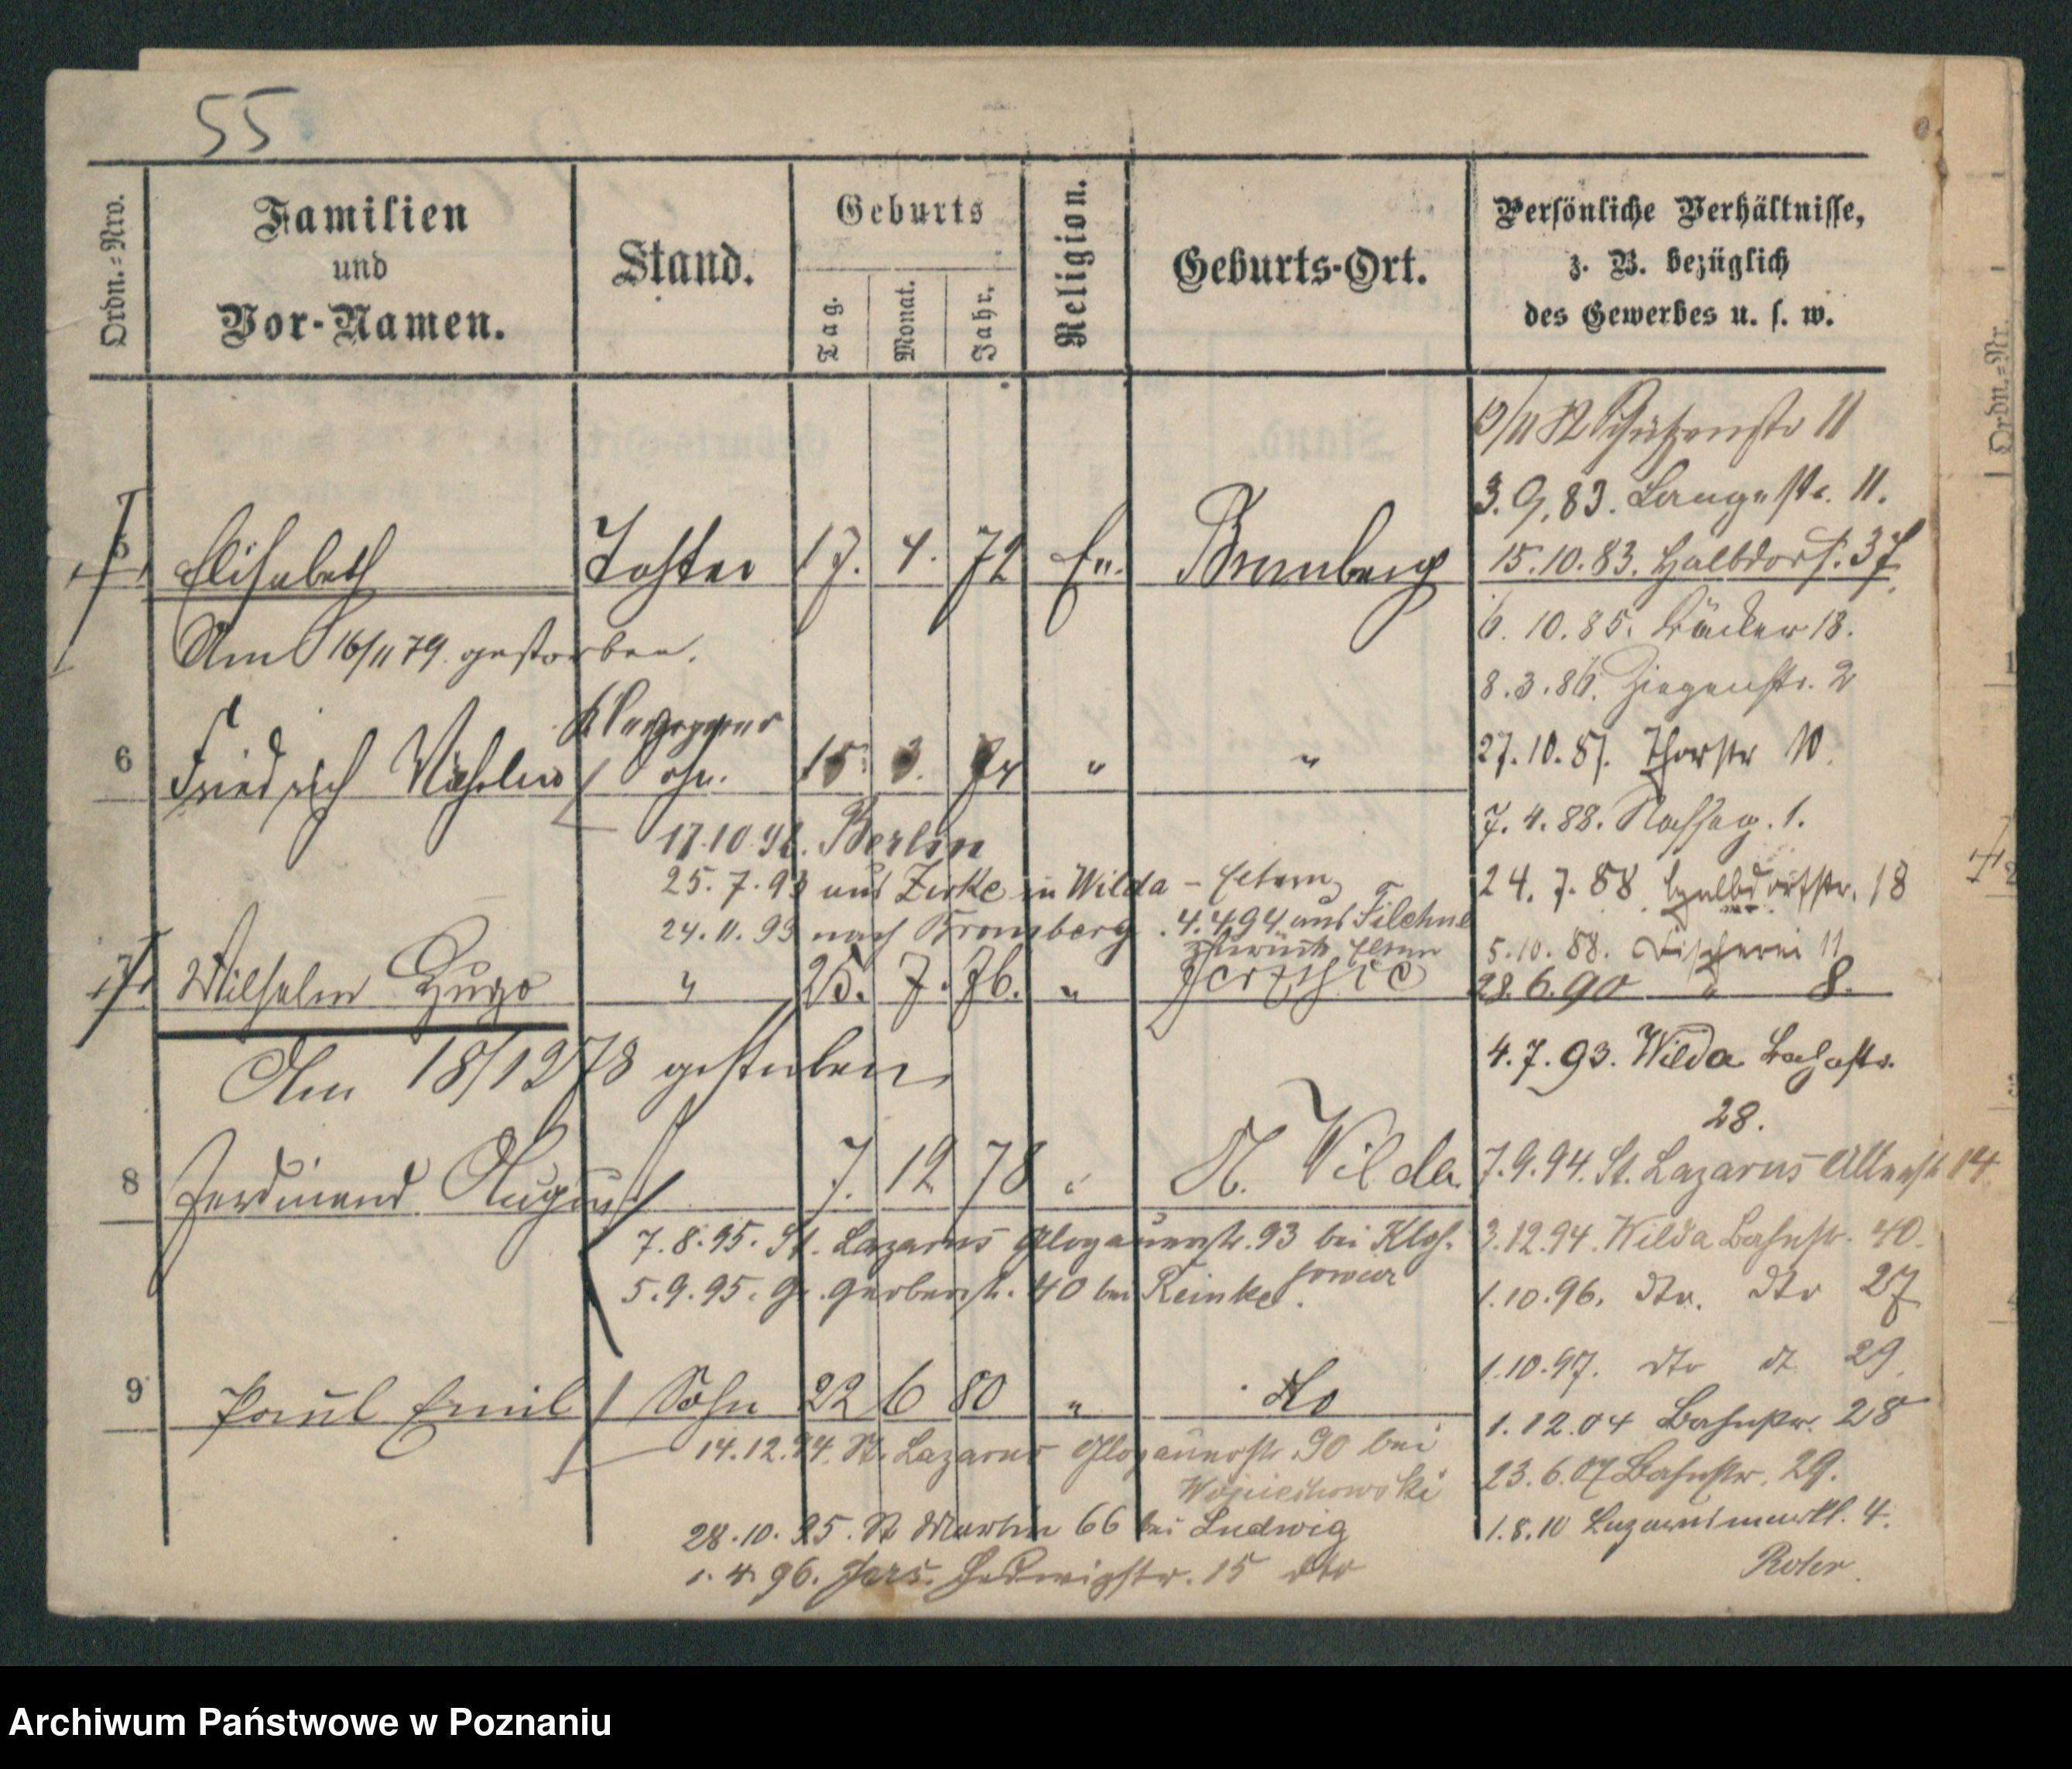 55
Ordn.=Nro.
Familien
und
Vor-Namen.
Stand.
Geburts
Tag.
Monat.
Jahr.
Religion.
Geburts-Ort.
Persönliche Verhältnisse,
z. B. bezüglich
des Gewerbes u. s. w.
Ordn.=Nr.
/11 82 Schützenstr 11
3.9.83. Langestr. 11.
5 Elisabeth Tochter 17. 4. 72 Ev. Bromberg
15.10.83. Halbdorfs. 37
Am 16/11 79. gestorben.
6. 10.85. Bäcker 18.
8.3.86. Ziegenstr. 2
Klempner
6 Friedrich Wilhelm Sohn. 15. 3. 74 " "
27.10.87. Thorstr 10.
17.10.92. Berlin
7.4.88. Nasseg. 1.
25.7.93 aus Zirke in Wilda - Eltern
24.7.88 Halbdorfstr. 18
24.11.93 nach Bromberg. 4.4.94 aus Filehne
zurück Eltern
5.10.88. Fischerei 11
7 Wilhelm Hugo " 25. 7. 76. " Jerzyce
28.6.90 " 8.
Am 18/12 78 gestorben
4.7.93. Wilda Bahnstr.
28.
8 Ferdinand August 7. 12 78 " N. Wilda
7.9.94. St. Lazarus 14
7.8.95. St. Lazarus Glogauerstr. 93 bei
3.12.94. Wilda Bahnstr. 40.
5.9.95. Gr. Gerberstr. 40 bei Reinke.
1.10.96. dto. dto 27
1.10.97. dto dt 29.
9 Paul Emil Sohn 22 6 80 " do
1.12.04 Bahnstr. 28
14.12.94. St. Lazarus Glogauerstr. 90 bei
Wojciechowski
23.6.07 Bahnstr. 29.
28.10.95. St Martin 66 bei Ludwig
1.8.10 Lazarusmarkt. 4.
1.4.96. Jers. Hedwigstr. 15 dto
Archiwum Państwowe w Poznaniu